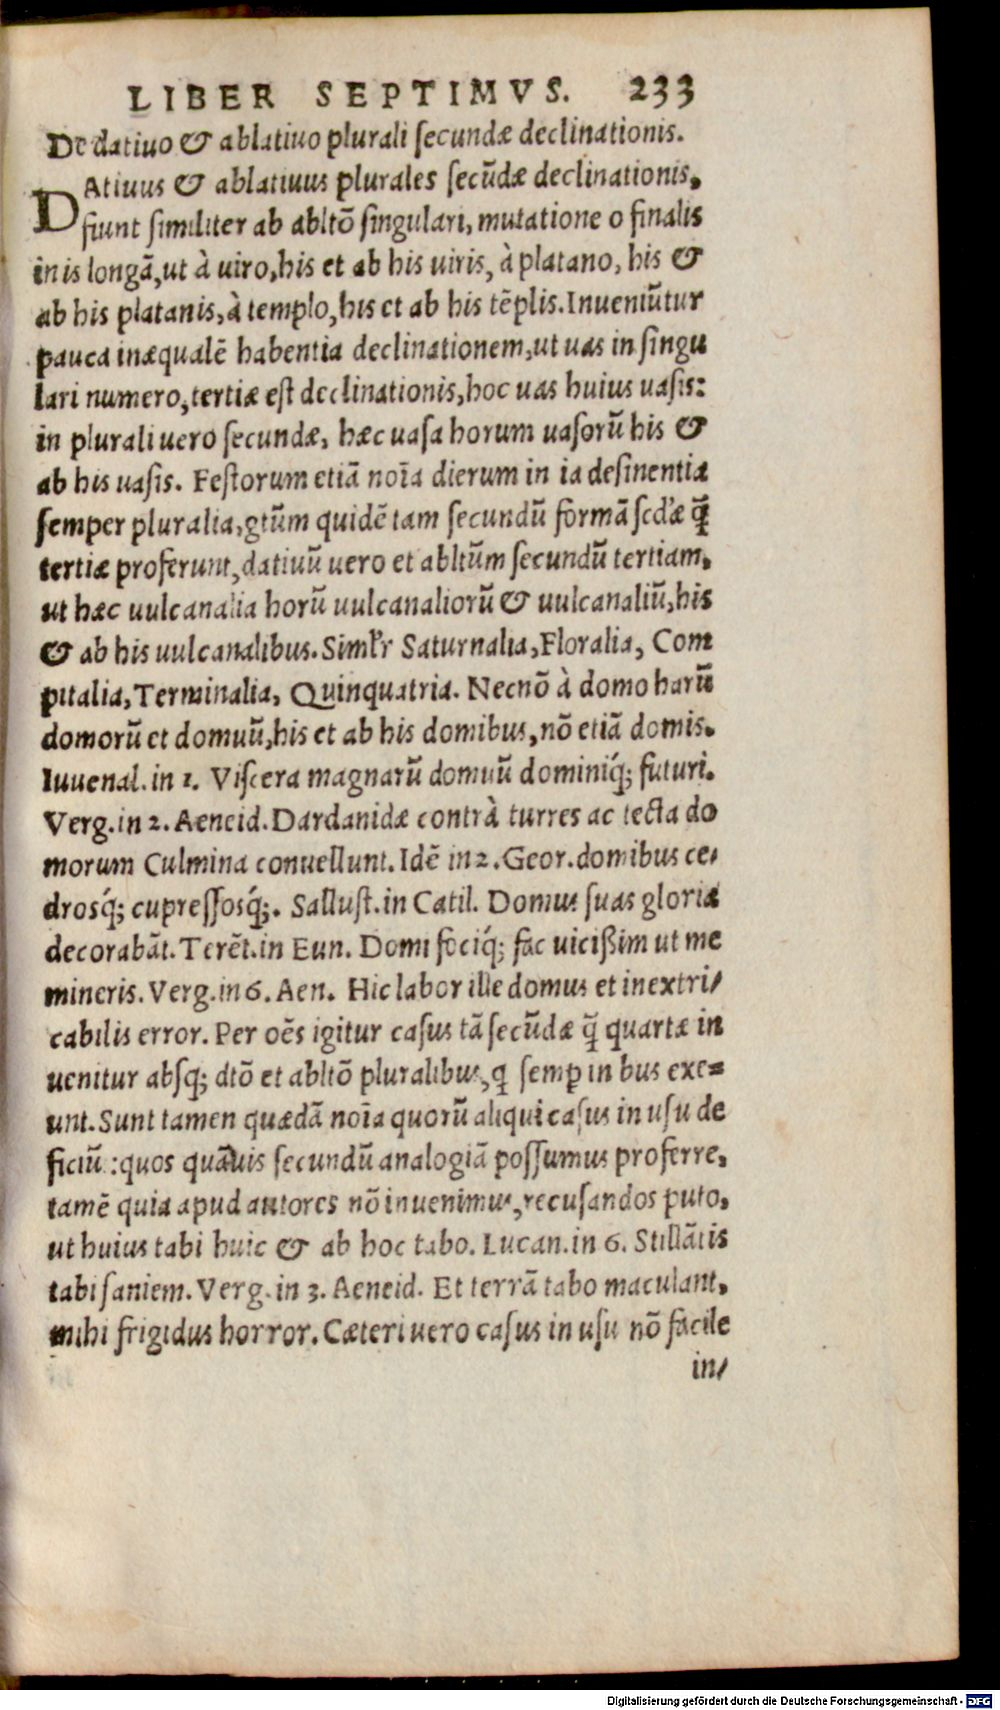 LIBER SEPTIMVS. 233
De datiuo & ablatiuo plurali ſecundæ declinationis.
DAtiuus & ablatiuus plurales ſecūdæ declinationis,
fiunt ſimiliter ab abltō ſingulari, mutatione o finalis
in is longā, ut à uiro, his et ab his uiris, à platano, his &
ab his platanis, à templo, his et ab his tēplis. Inueniūtur
pauca inæqualē habentia declinationem, ut uas in ſingu
lari numero, tertiæ eſt declinationis, hoc uas huius uaſis:
in plurali uero ſecundæ, hæc uaſa horum uaſorū his &
ab his uaſis. Feſtorum etiā noīa dierum in ia deſinentia
ſemper pluralia, gtūm quidē tam ſecundū formā ſcd'æ q̄
tertiæ proferunt, datiuū uero et abltūm ſecundū tertiam,
ut hæc uulcanalia horū uulcanaliorū & uulcanaliū, his
& ab his uulcanalibus. Siml'r Saturnalia, Floralia, Com
pitalia, Terminalia, Quinquatria. Necnō à domo harū
domorū et domuū, his et ab his domibus, nō etiā domis.
Iuuenal. in 1. Viſcera magnarū domuū dominiq́; futuri.
Verg. in 2. Aeneid. Dardanidæ contrà turres ac tecta do
morum Culmina conuellunt. Idē in 2. Geor. domibus ce/
drosq́; cupreſſosq́;. Salluſt. in Catil. Domus ſuas gloria
decorabāt. Terēt. in Eun. Domi fociq́; fac uicißim ut me
mineris. Verg. in 6. Aen. Hic labor ille domus et inextri/
cabilis error. Per oēs igitur caſus tā ſecūdæ q̄ quartæ in
uenitur abſq; dtō et abltō pluralibus, q ſemꝑ in bus exe=
unt. Sunt tamen quædā noīa quorū aliqui caſus in uſu de
ficiū: quos quāuis ſecundū analogiā poſſumus proferre,
tamē quia apud autores nō inuenimus, recuſandos puto,
ut huius tabi huic & ab hoc tabo. Lucan. in 6. Stillātis
tabi ſaniem. Verg. in 3. Aeneid. Et terrā tabo maculant,
mihi frigidus horror. Cæteri uero caſus in uſu nō facile
in/
Digitalisierung gefördert durch die Deutsche Forschungsgemeinschaft - DFG